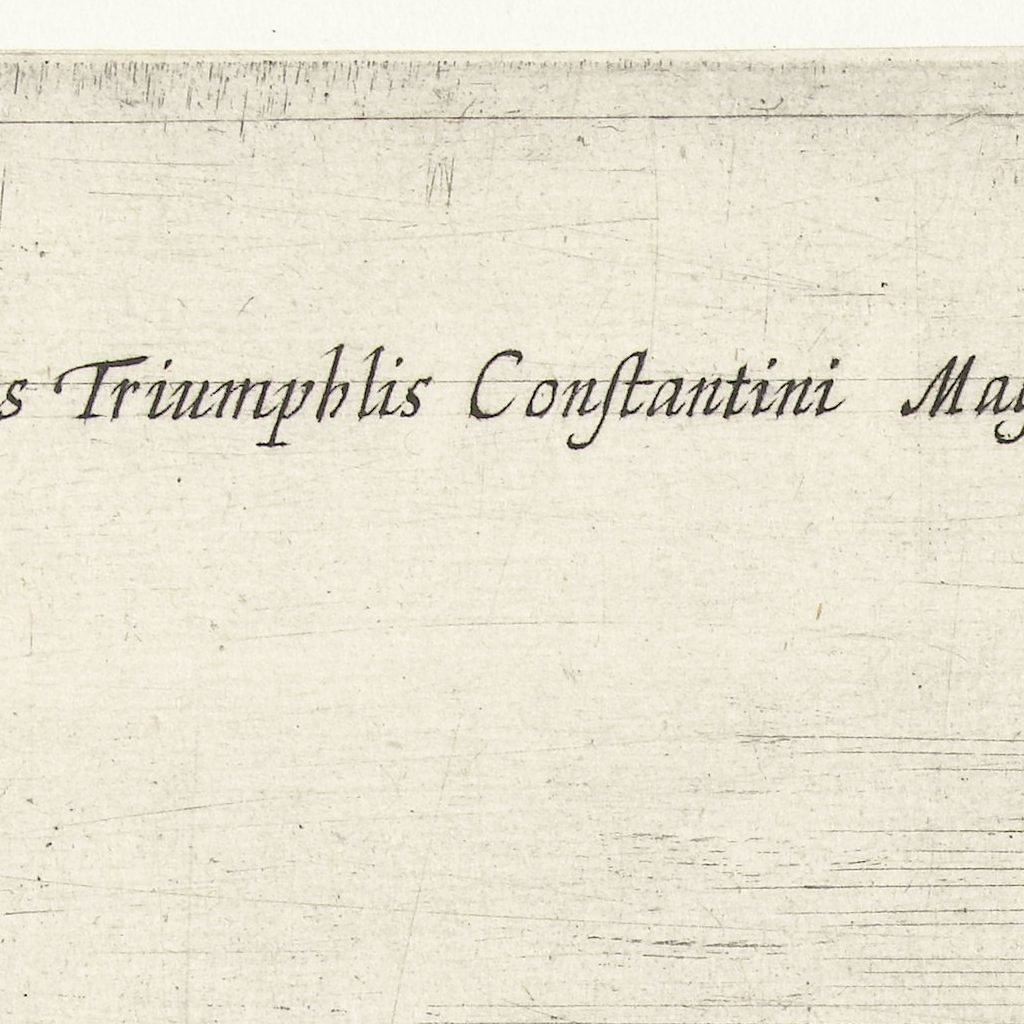 s Triumphlis Conſtantini Mag